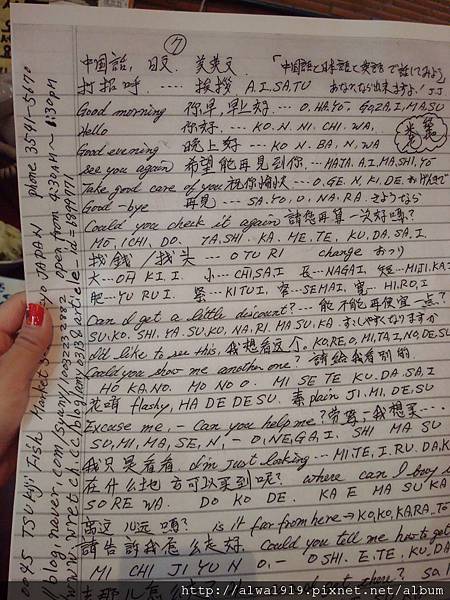 ⑦
中国語, 日文, 英英文 「中国語と日本語と英語で話してみよう
打招呼.... 挨拶 A.I.SA.TU あなたなら出来ますよ! JJ
Good morning 你早,早上好... O.HA.YO. GO.ZA.I.MA.SU
Hello 你好.... KO.N.NI.CHI.WA.
Good evening 晚上好... KO N.BA.N, WA
See you again 希望能再見到你... MATA.A.I.MA.SHI,YO
Take good care of you 祝你愉快... O.GE.N,KI.DE. おげんきで
Good-bye 再見... SA.YO,O,NA.RA. さようなら
Could you check it again 請您再算一次好嗎?
MO,ICHI,DO. TA.SHI.KA.ME.TE,KU.DA.SA.I.
找錢/找头 ... O TU RI change おつり
大...OH KI.I. 小...CHI.SA.I 長...NAGA.I, 短...MIJI.KA.I
肥...YU RU I. 緊...KI TU I, 窄...SEMA.I, 寬...HI.RO,I
Can I get a little discount?... 能不能再便宜一点?
SU.KO.SHI,YA.SU.KO,NA.RI.MA SU.KA.
I'd like to see this, 我想看这个. KO.RE.O,MI.TA.I,NO,DE.SU
Could you show me another one? 請給我看別的
HO KA.NO. MO NO O. MI SE TE KU.DA.SA,I
花哨 flashy, HA DE DE SU. 素 plain JI,MI,DE,SU
Excuse me,- Can you help me? 劳驾-我想买...
SU,MI,MA,SE,N,- O.NE,GA,I. SHI MA SU
我只是看看. I'm just looking... MI.TE,I.RU.DA.K
在什么地方可以买到呢? where can I buy i
SO RE WA. DO KO DE. KA E MA SU KA
离这儿远嗎? is it far from here → KO,KO.KARA.TO
請告訴我怎么走好. Could you tell me how to get
MI CHI JI YU N O.- O SHI.E,TE,KU,DA
out there? sa
0045 TSUKIJI Fish Market TOKYO JAPAN phone 3541-5670
open from 4:30AM~1:30pm
http://alwa1919.pixnet.net/album